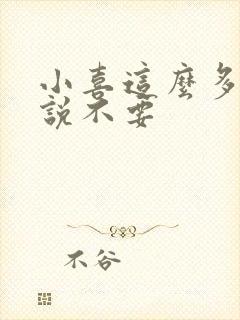 小喜這麼多
說不要
不谷